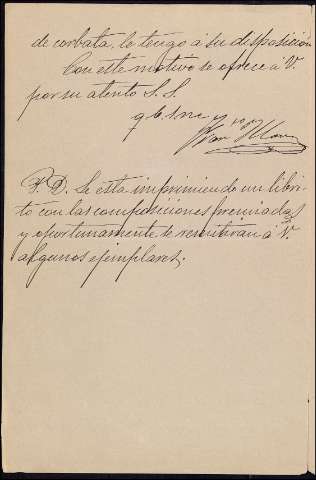 de corbata, lo tengo á su disposición
Con este motivo se ofrece á V.
por su atento S. S.
q b s m
P.D. Se esta imprimiendo un libri-
to con las composiciones premiadas
y oportunamente se remitiran á V.
algunos ejemplares.